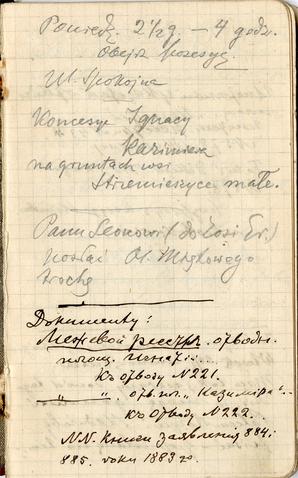 Poniedz. 2 1/29. — 4 godz.
Objazd
Ul. Spokojna
Koncesye Ignacy
Kazimierz
na gruntach wsi
Strzemieszyce małe.
Panu Leonowi (do Zosi Gr.)
posłać Ol. Migdowego
trochę
Dokumenty:
Межевой реестръ. отводн.
площ. Игнатій...
Къ отводу N 221.
" " отв. пл. „Казиміръ"..
къ отводу N 222.
N.N. книги заявленія 884 i
885. roku 1883 го.